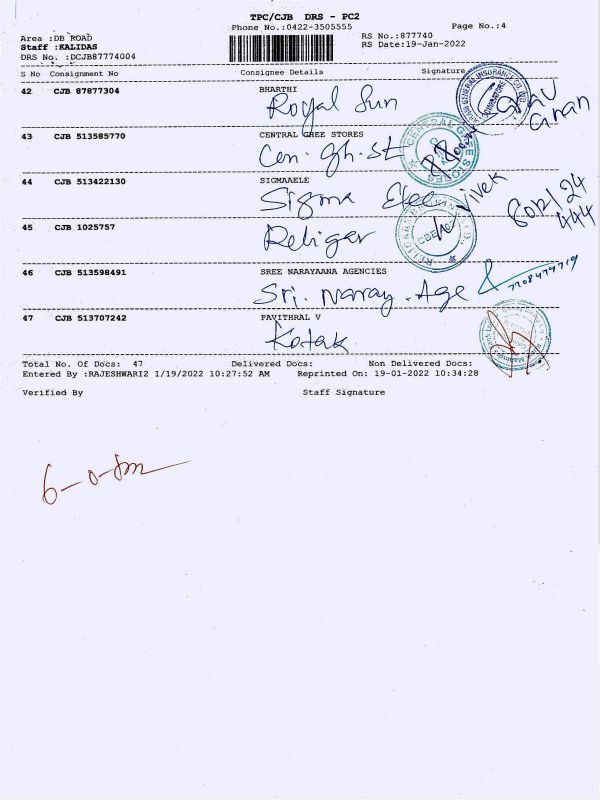 TPC/CJB DRS - PC2
Phone No.:0422-3505555
Page No.:4
Area :DB ROAD
RS No.:877740
Staff :KALIDAS
RS Date:19-Jan-2022
DRS No. :DCJB87774004
S No Consignment No Consignee Details Signature
42 CJB 87877304 BHARTHI
Royal Sun
43 CJB 513585770 CENTRAL GHEE STORES
Cen. gh. St
44 CJB 513422130 SIGMAAELE
Sigma Elec Vivek
45 CJB 1025757
Religar
46 CJB 513598491 SREE NARAYAANA AGENCIES
Sri. Naray. Age
47 CJB 513707242 PAVITHRAL V
Kotak
Total No. Of Docs: 47 Delivered Docs: Non Delivered Docs:
Entered By :RAJESHWARI2 1/19/2022 10:27:52 AM Reprinted On: 19-01-2022 10:34:28
Verified By Staff Signature